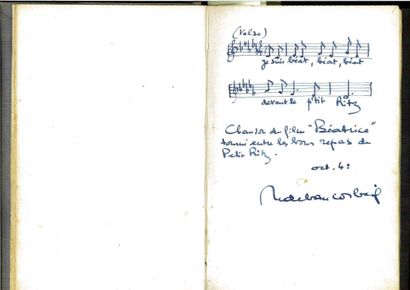 (Valse)
je suis béat, béat, béat
devant le p'tit Ritz
Chanson du film "Béatrice"
tourné entre les bons repas du
Petit Ritz.
oct. 41